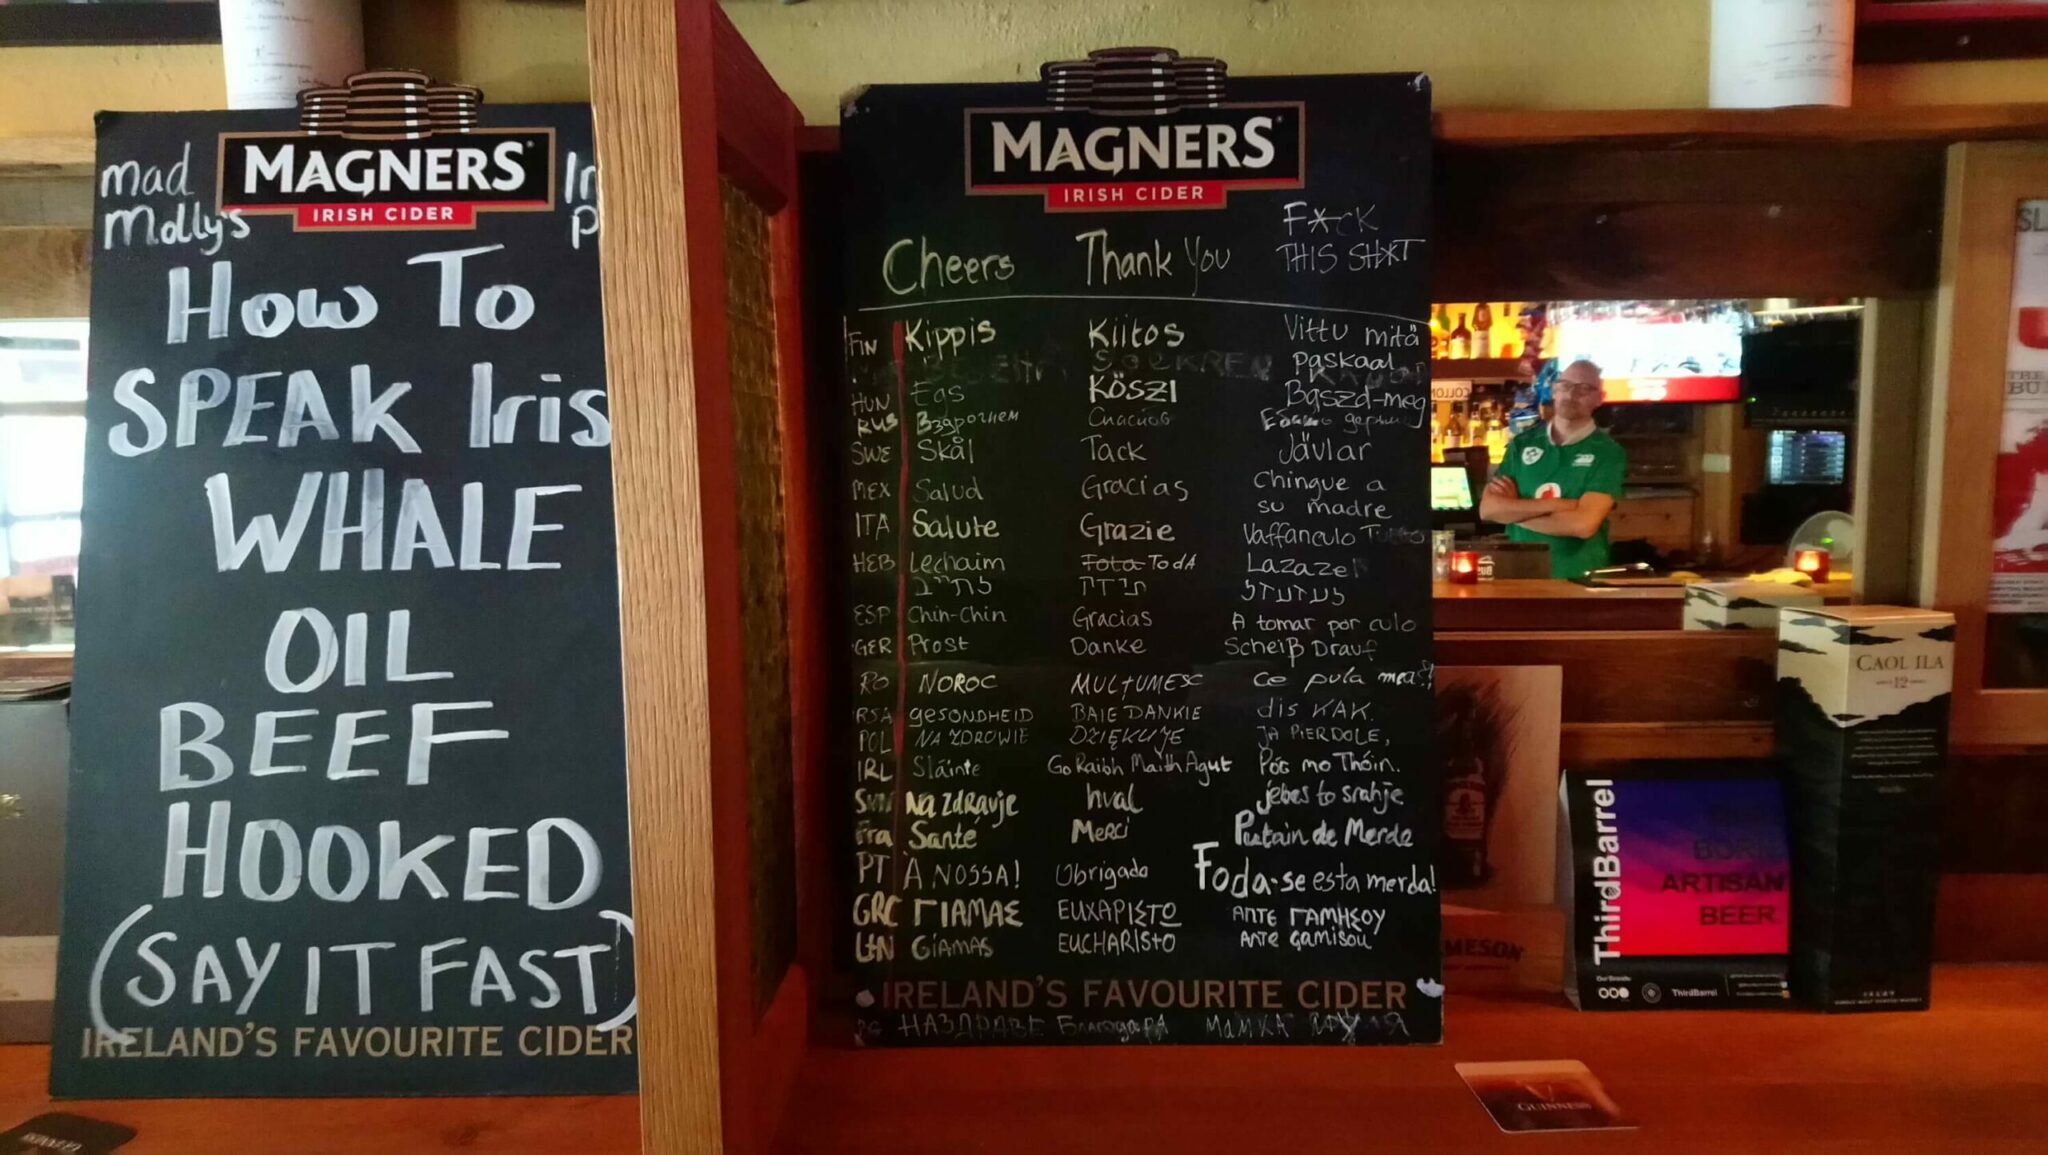 mad
Molly's
MAGNERS
IRISH CIDER
How To
SPEAK Iris
WHALE
OIL
BEEF
HOOKED
(SAY IT FAST)
IRELAND'S FAVOURITE CIDER
MAGNERS
IRISH CIDER
Cheers Thank You F*CK THIS SH*T
FIN Kippis Kiitos Vittu mitä paskaa
HUN Egs KÖSZI Baszd-meg
RUS Спасибо
SWE Skål Tack Jävlar
MEX Salud Gracias Chingue a su madre
ITA Salute Grazie Vaffanculo
HEB Lechaim Todà Lazazel
ESP Chin-Chin Gracias A tomar por culo
GER Prost Danke Scheiß Drauf
RO NOROC MULȚUMESC ce pula mea?!
RSA gesONDHEID BAIE DANKIE dis KAK.
POL NA ZDROWIE DZIĘKUJE JA PIERDOLE,
IRL Sláinte Go Raibh Maith Agut Póg mo Thóin.
Na zdravje hval jebes to sranje
Fra Santé Merci Putain de Merde
PT À NOSSA! Obrigado Foda-se esta merda!
GRC ΓΙΑΜΑΣ ΕΥΧΑΡΙΣΤΟ ΑΝΤΕ ΓΑΜΗΣΟΥ
GIAMAS EUCHARISTO ANTE gamisou
IRELAND'S FAVOURITE CIDER
BG НАЗДРАВЕ БлагодаРЯ МАМКА
CAOL ILA
12
ThirdBarrel
BORN
ARTISAN
BEER
ThirdBarrel
MESON
GUINNESS